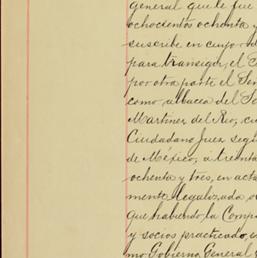 General que le fue
ochocientos ochenta y
suscribe en cuyo
para transigir, el
por otra parte el
como, albacea del
Martinez del Rio; 
Ciudadano Juez
de México; á treinta
ochenta y tres, en
mente legalizada
que habiendo la
y socios practicado,
mo Gobierno General